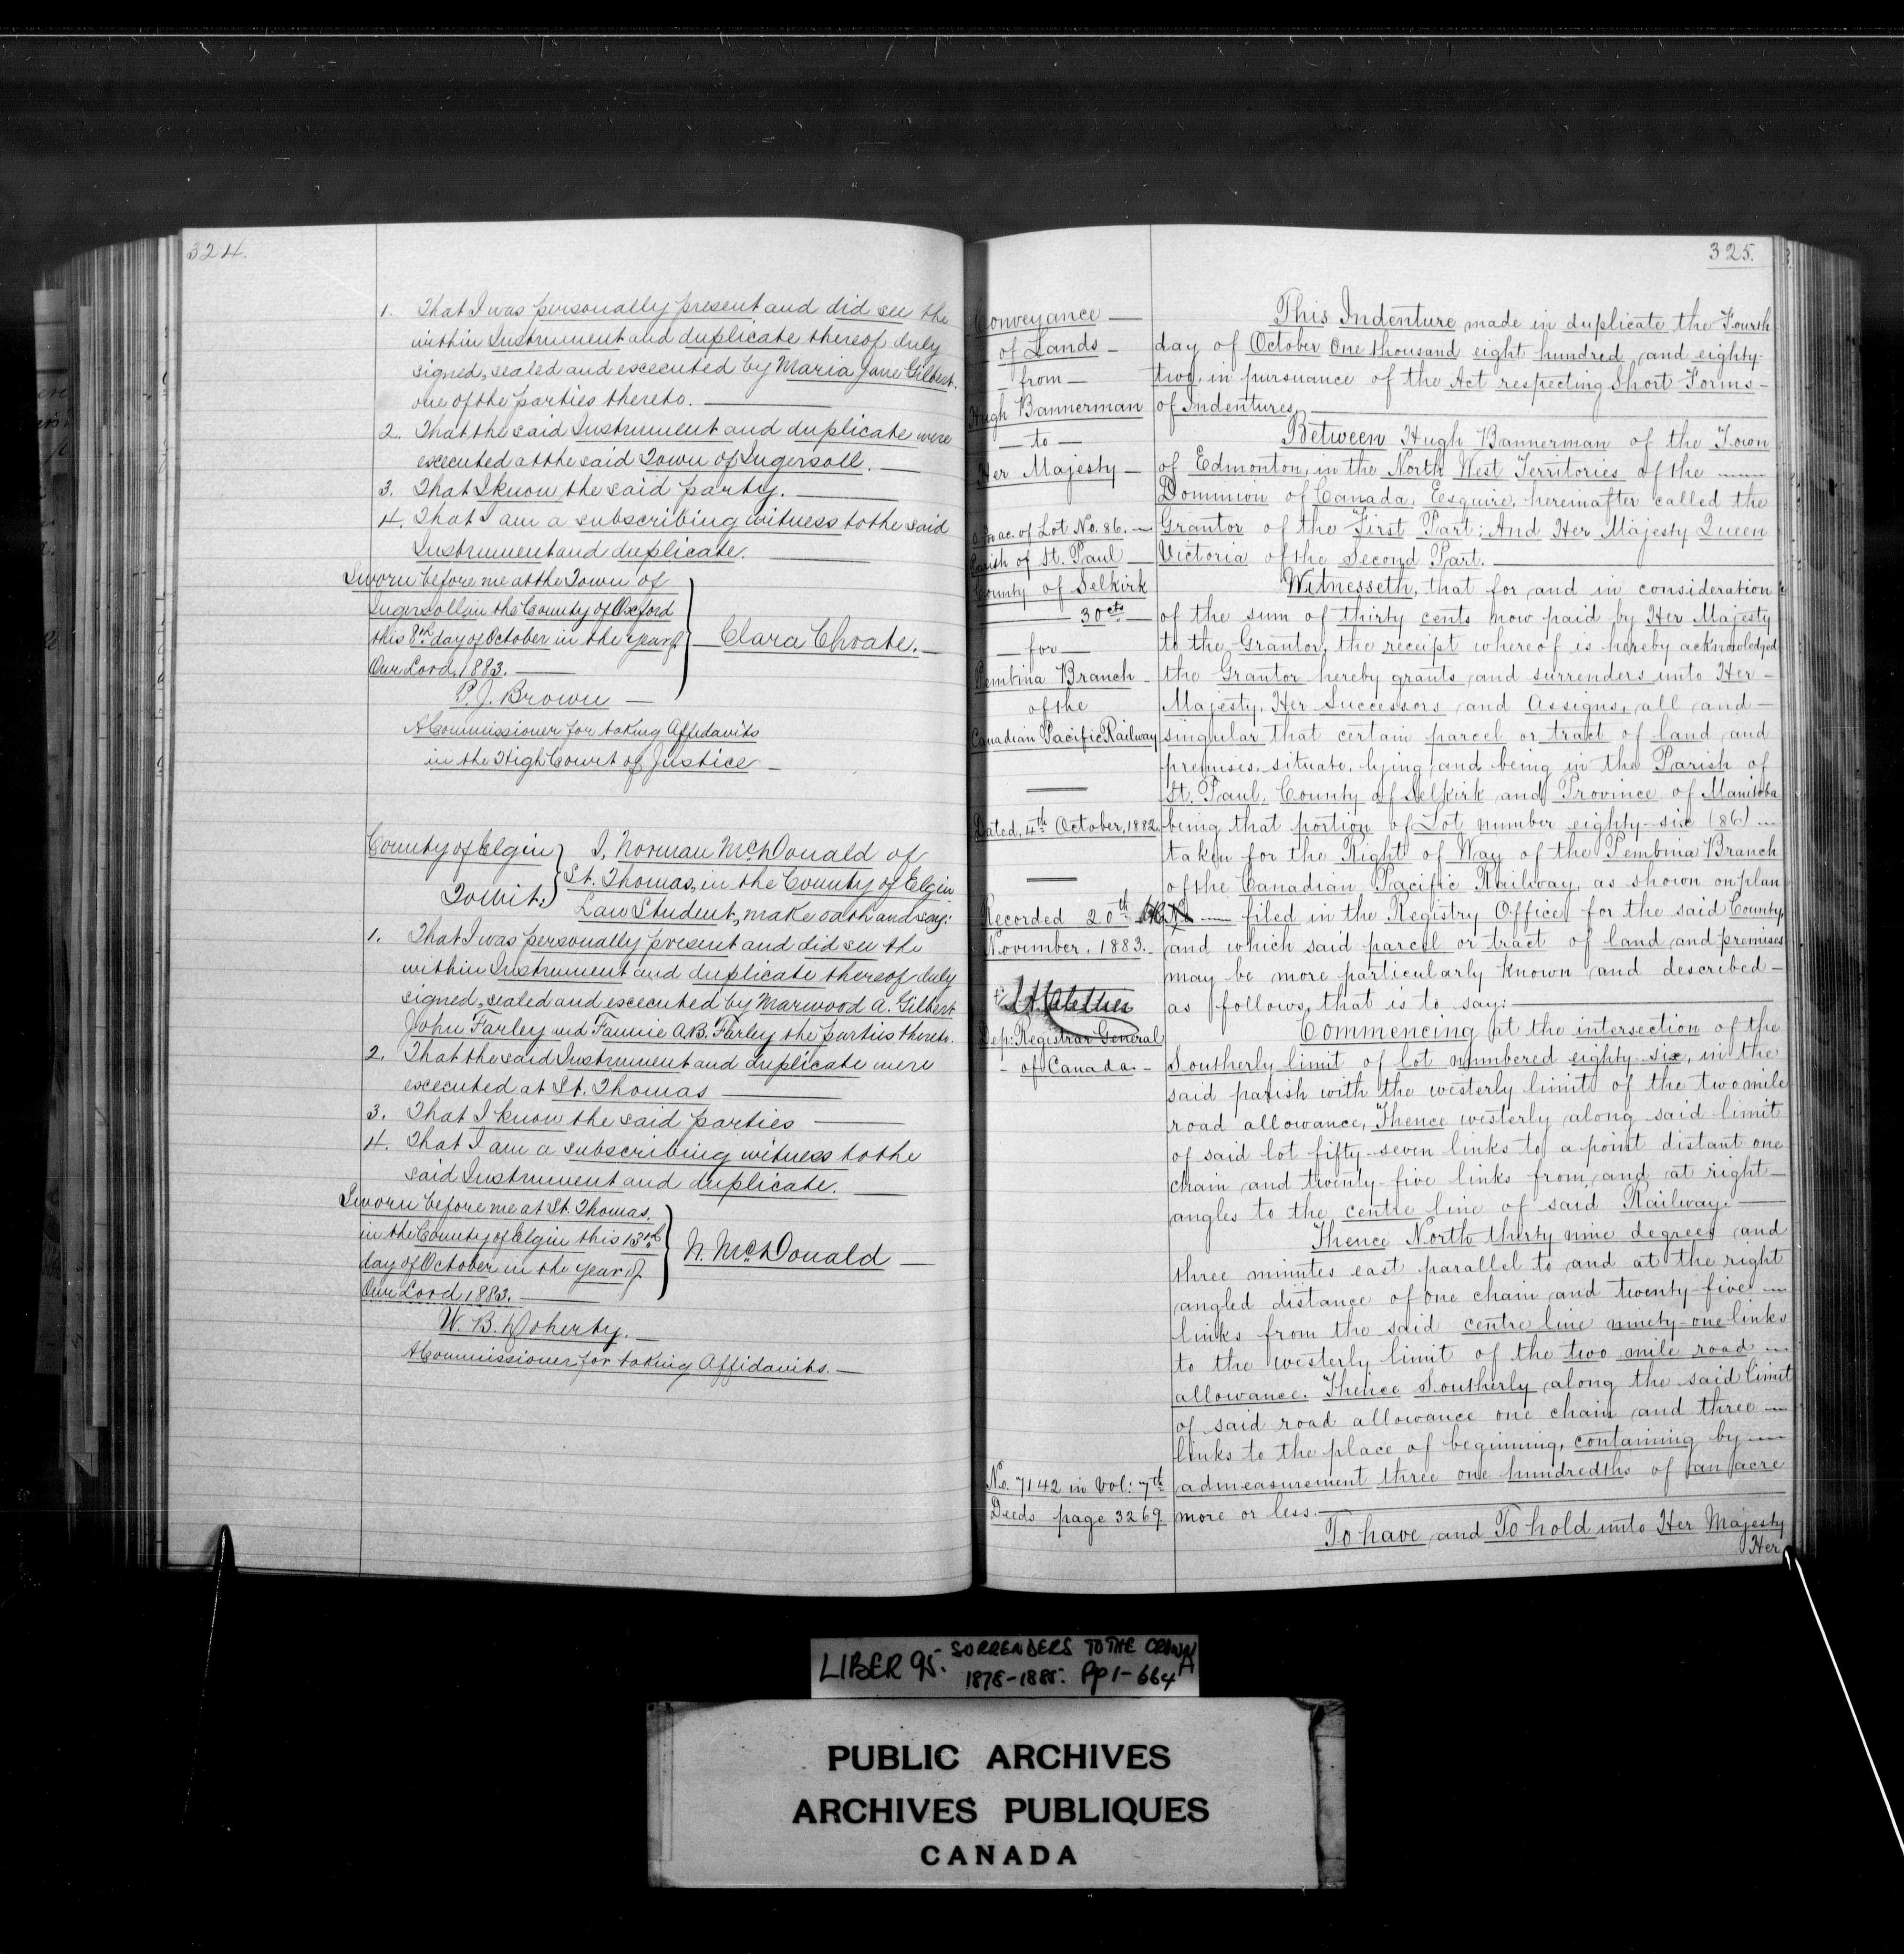 324.
1. That I was personally present and did see the
within Instrument and duplicate thereof duly
signed, sealed and excecuted by Maria Jane Gilbert.
one of the parties thereto.
2. That the said Instrument and duplicate were
excecuted at the said Town of Ingersoll.
3. That I know the said party.
4. That I am a subscribing witness to the said
Instrument and duplicate.
Sworn before me at the Town of
Ingersoll, in the County of Oxford
this 8th day of October in the year of
Our Lord, 1883.
Clara Choate.
P. J. Brown
A Commissioner for taking Affidavits
in the High Court of Justice
County of Elgin
To wit:
I, Norman McDonald of
St. Thomas, in the County of Elgin
Law Student, make oath and say:
1. That I was personally present and did see the
within Instrument and duplicate thereof duly
signed, sealed and excecuted by Marwood A. Gilbert
John Farley and Fannie A.B. Farley the parties thereto.
2. That the said Instrument and duplicate were
excecuted at St. Thomas
3. That I know the said parties
4. That I am a subscribing witness to the
said Instrument and duplicate.
Sworn before me at St. Thomas.
in the County of Elgin this 13th
day of October in the year of
Our Lord 1883.
N. McDonald
W. B. Doherty.
A Commissioner for taking Affidavits.
325.
Conveyance
of Lands
from
Hugh Bannerman
to
Her Majesty
ac. of Lot No. 86.
Parish of St. Paul
County of Selkirk
30cts
for
Pembina Branch
of the
Canadian Pacific Railway
Dated, 4th October, 1882.
Recorded 20th
November, 1883.
Dep: Registrar General
of Canada.
No. 7142 in Vol: 7th
Deeds page 3269.
This Indenture made in duplicate the Fourth
day of October One thousand eight hundred and eighty-
two, in pursuance of the Act respecting Short Forms
of Indentures,
Between Hugh Bannerman of the Town
of Edmonton, in the North West Territories of the
Dominion of Canada, Eesquire, hereinafter called the
Grantor of the First Part; And Her Majesty Queen
Victoria of the Second Part.
Witnesseth, that for and in consideration
of the sum of thirty cents now paid by Her Majesty
to the Grantor, the receipt whereof is hereby acknowledged
the Grantor hereby grants and surrenders unto Her
Majesty, Her Successors and Assigns, all and
singular that certain parcel or tract of land and
premises, situate, lying and being in the Parish of
St. Paul, County of Selkirk and Province of Manitoba
being that portion of Lot number eighty-six (86)
taken for the Right of Way of the Pembina Branch
of the Canadian Pacific Railway, as shown on plan
filed in the Registry Office for the said County,
and which said parcel or tract of land and premises
may be more particularly known and described
as follows, that is to say:
Commencing at the intersection of the
Southerly limit of lot numbered eighty-six, in the
said parish with the westerly limit of the two mile
road allowance, Thence westerly along said limit
of said lot fifty-seven links to a point distant one
chain and twenty-five links from, and at right
angles to the centre line of said Railway.
Thence North thirty nine degrees and
three minutes east parallel to and at the right
angled distance of one chain and twenty-five
links from the said centre line ninety-one links
to the westerly limit of the two mile road
allowance. Thence Southerly along the said limit
of said road allowance one chain and three
links to the place of beginning, containing by
admeasurement three one hundredths of an acre
more or less.
To have and To hold unto Her Majesty
Her
LIBER 95. SURRENDERS TO THE CROWN
1878-1885. Pp 1-664A
PUBLIC ARCHIVES
ARCHIVES PUBLIQUES
CANADA